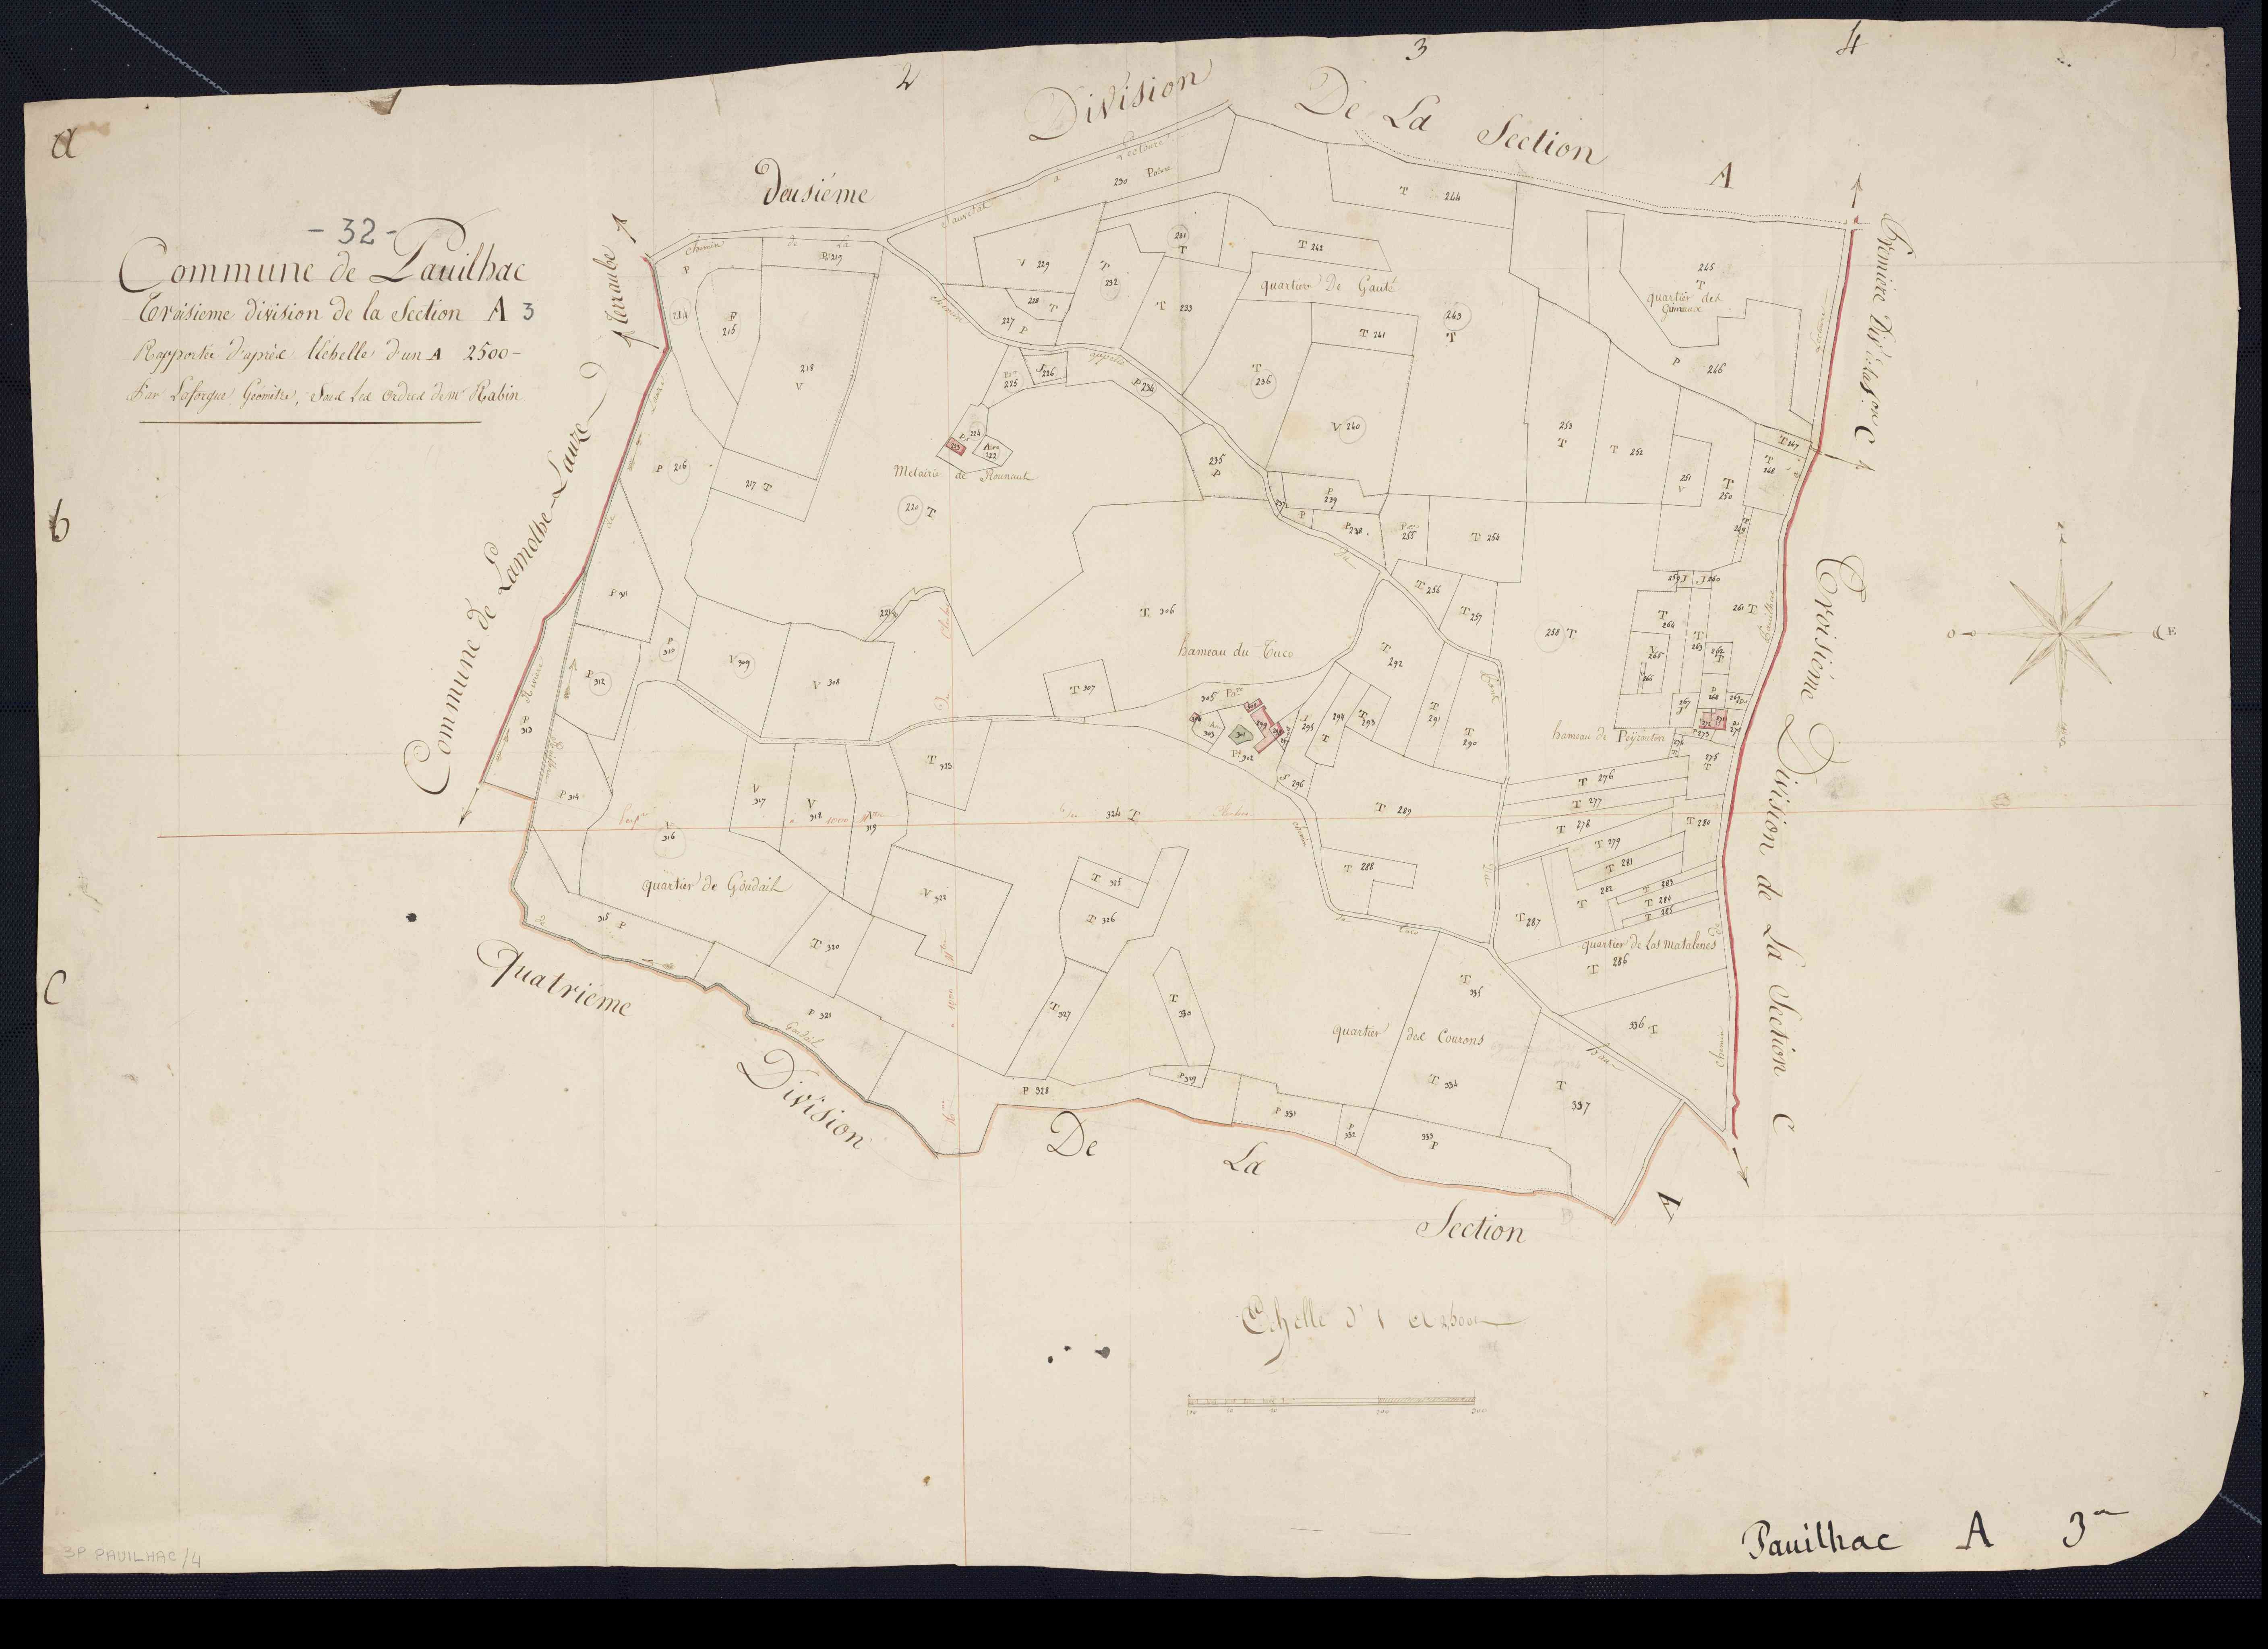 a
2
3
4
b
C
- 32 -
Commune de Pauilhac
Troisieme division de la Section A 3
Rapportée d'après l'échelle d'un A 2500 -
Par Laforgue Géomètre, Sous les Ordres de mr Rabin
Deusiéme Division De La Section A
Terraube
Commune de Lamothe-Lauze
Premiere Div de la Son C
Troisiéme Division de La Section C
Quatriéme Division De La Section A
chemin de La Sauvetat à Lectoure
230 Pature
T 244
P 214
F 215
P 219
218 V
V 229
228 T
227 P
T 232
231 T
T 233
T 242
quartier De Gauté
243 T
T 241
T 236
V 240
245 T
quartier des Guiraux
P 246
T 247
T 248
chemin
P 234
J 226
225
224
223
Aire 222
Metairie de Rounaut
220 T
P 216
217 T
235 P
237 P
P 239
P 238
255
T 254
253 T
T 252
251 V
T 250
249 T
T 256
T 257
258 T
259 J
J 260
261 T
T 264
T 263
262 T
V 265
266
267 J
268
269
270
271
272
273
274
275 T
hameau de Peyructon
T 276
T 277
T 278
T 279
T 280
T 281
282 T
T 283
T 284
T 285
T 287
quartier de Las Matalenes
T 286
221
T 306
hameau du Tuco
T 307
305
303
301
302
299
J 295
294 T
T 293
T 292
T 291
T 290
J 296
T 289
T 288
P 311
P 310
V 309
V 308
P 312
P 313
P 314
V 316
V 317
V 318
V 319
T 323
324 T
quartier de Goudail
315 P
T 320
P 321
V 322
T 325
T 326
T 327
P 328
P 329
T 330
P 331
P 332
333 P
T 334
T 335
336 T
T 337
quartier des Courons
Goudail
chemin du Tuco
O
E
Echelle d'1 à 2500
Pauilhac A 3
3P PAUILHAC/4